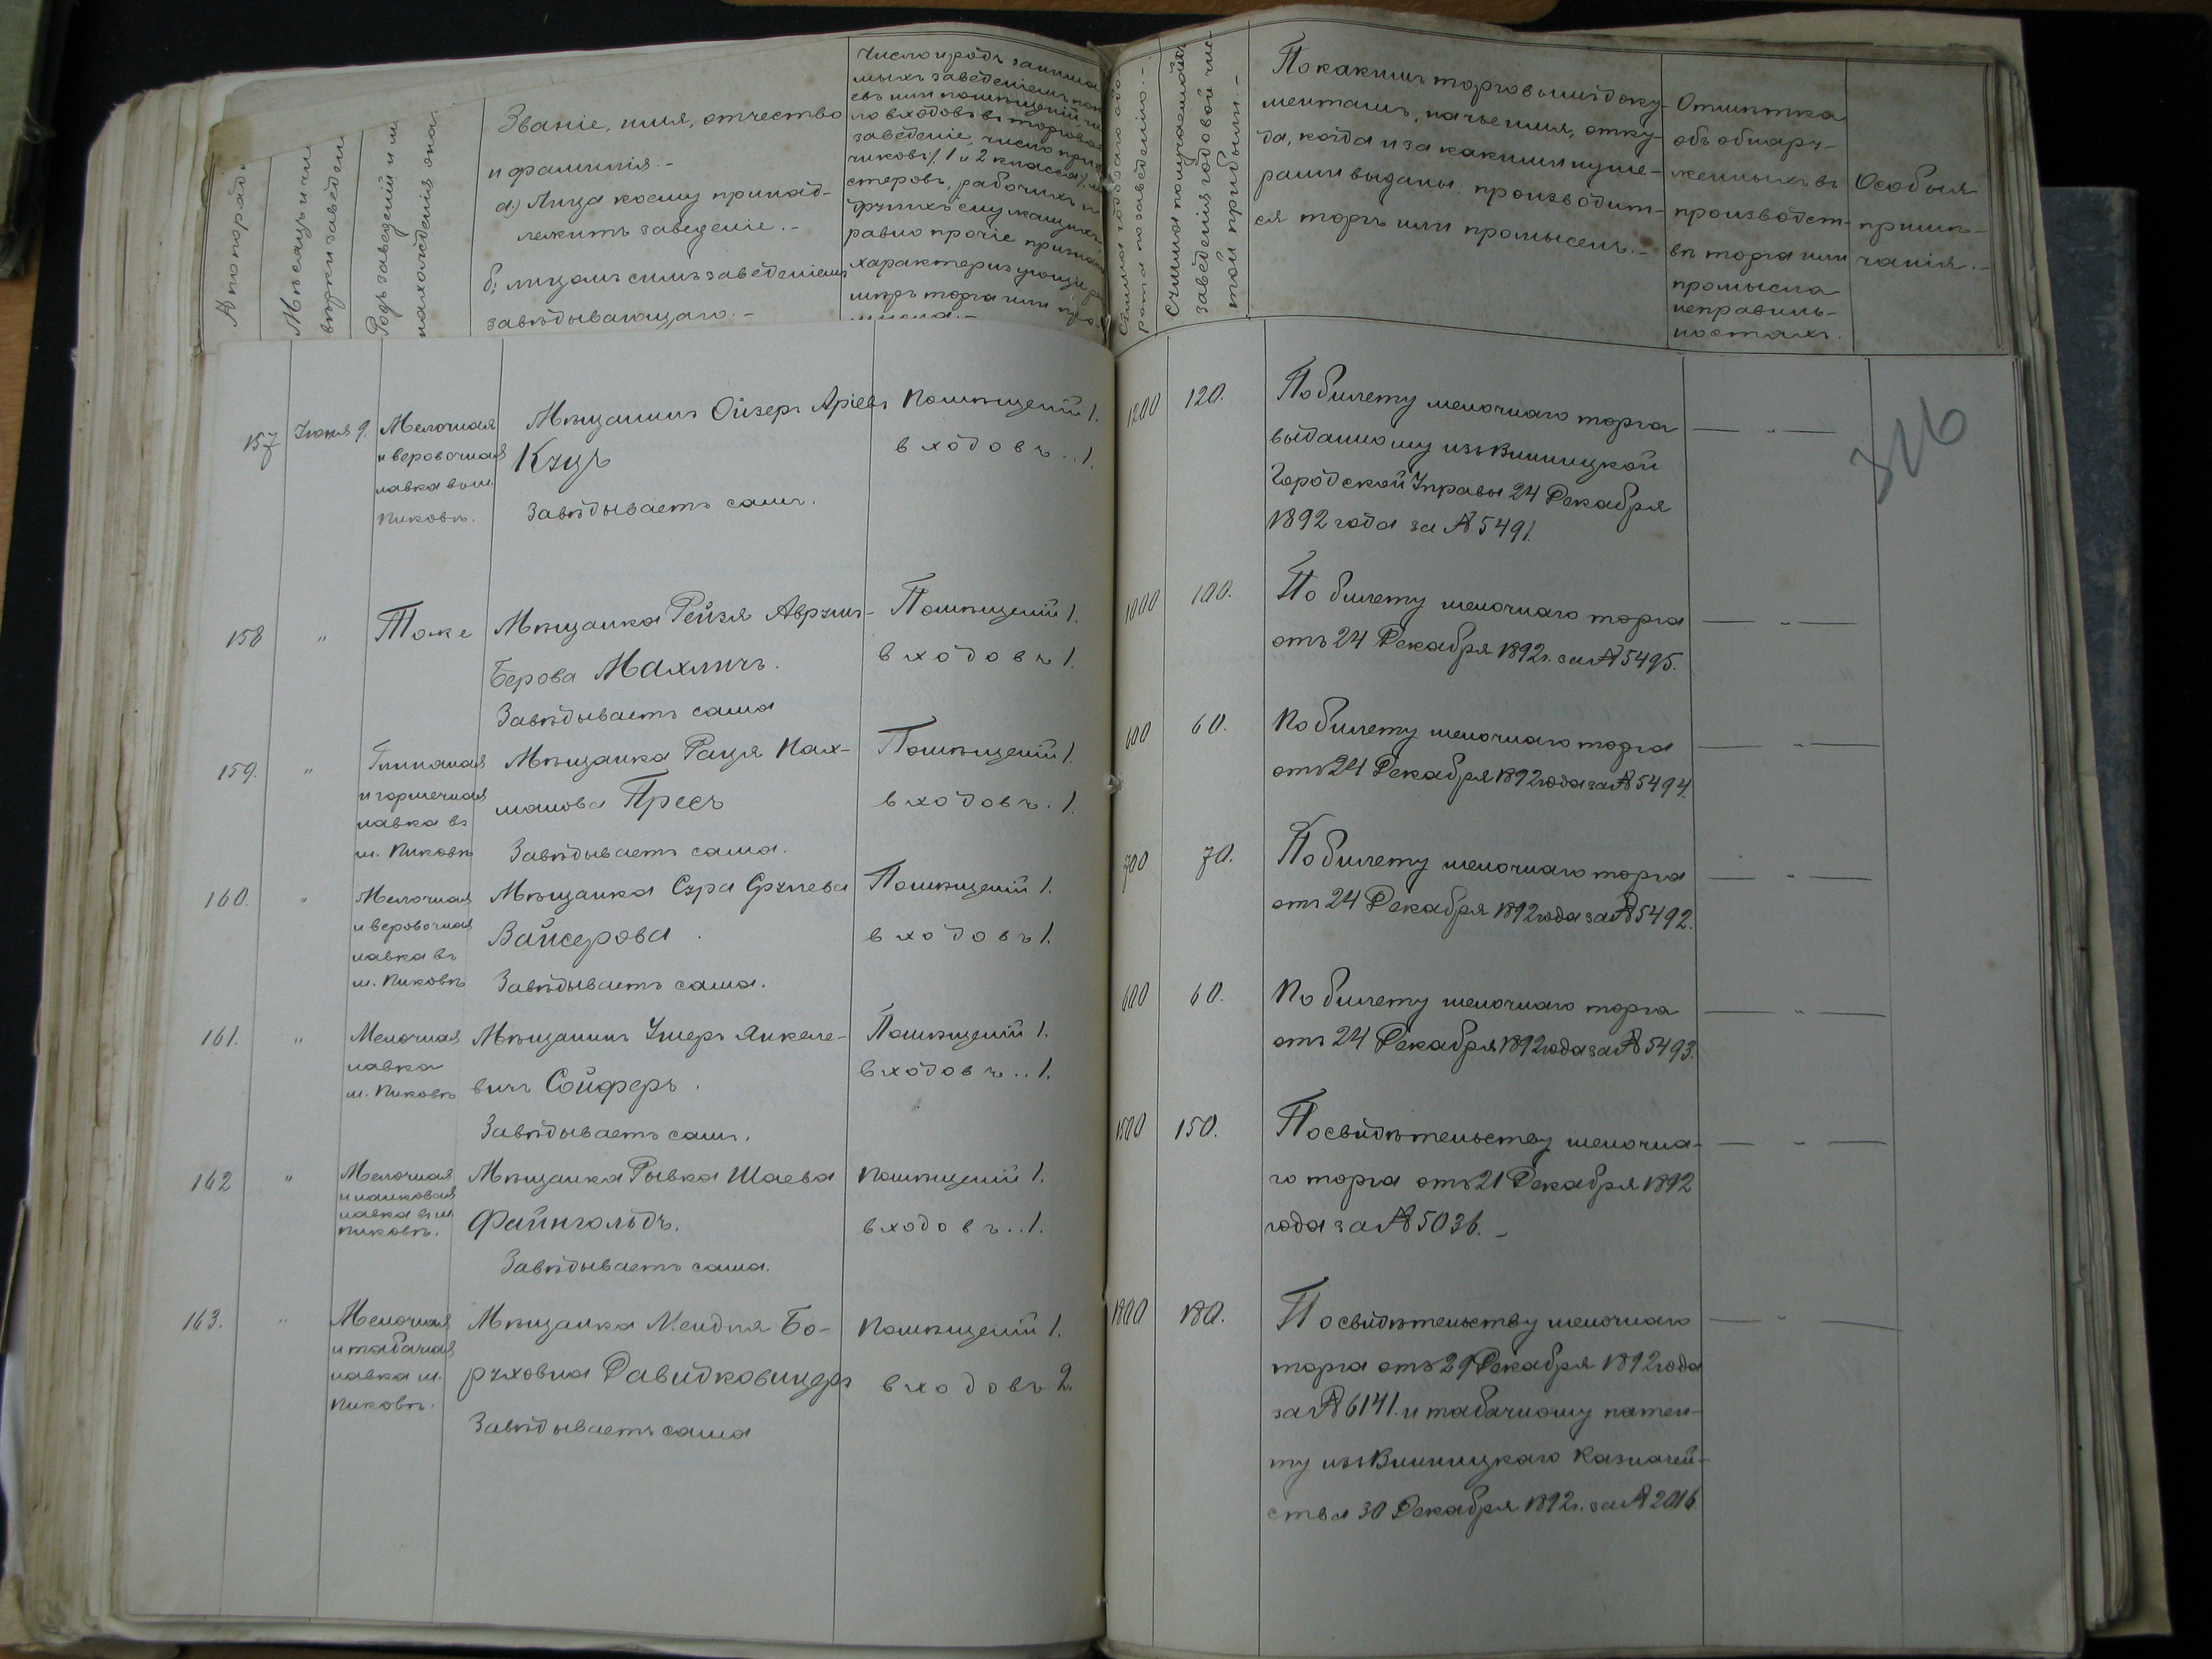 № по поряд.
Мѣсяцъ и чи
вѣрки заведен
Родъ заведеній и м
нахожденія онаг
Званіе, имя, отчество
и фамилія.-
а) Лица коему принад-
лежитъ заведеніе.-
б) лицамъ симъ заведеніемъ
завѣдывающаго.-
Число и родъ занима
мыхъ заведеніемъ пок
евъ или помѣщеній чи
ло входовъ въ торгов
заведеніе, число при
чиковъ 1 и 2 класса, м
стеровъ, рабочихъ и
другихъ служащихъ
равно прочіе признаки
характеризующіе ра
мѣръ торга или про
мысла.-
Сумма годоваго обо-
рота по заведенію.-
Сумма получаемой
заведенія годовой чис-
той прибыли.-
По какимъ торговымъ доку-
ментамъ, на чье имя, отку-
да, когда и за какими нуме-
рами выданы: производит-
ся торгъ или промыселъ.-
Отмѣтка
объ обнару-
женныхъ въ
производст-
вѣ торга или
промысла
неправиль-
ностяхъ.
Особыя
примѣ-
чанія.-
316
157 Іюня 9. Мелочная
и веровочная
лавка в м.
Пиковѣ.
Мѣщанинъ Ойзеръ Аріевъ
Куцъ
Завѣдываетъ самъ.
Помѣщеній 1.
входовъ..1.
1200 120.
По билету мелочнаго торга
выданному изъ Винницкой
Городской Управы 24 Декабря
1892 года за № 5491.
— " —
158 " Тоже
Мѣщанка Рейзя Аврум-
Берова Махличъ.
Завѣдываетъ сама
Помѣщеній 1.
входовъ 1.
1000 100.
По билету мелочнаго торга
отъ 24 Декабря 1892г. за № 5495.
— " —
159. " Глиняная
и горшечная
лавка въ
м. Пиковѣ
Мѣщанка Рація Нах-
манова Пресъ
Завѣдываетъ сама.
Помѣщеній 1.
входовъ. 1.
600 60.
По билету мелочнаго торга
отъ 24 Декабря 1892 года за № 5494.
— " —
160. " Мелочная
и веровочная
лавка въ
м. Пиковѣ
Мѣщанка Сура Срулева
Вайсерова.
Завѣдываетъ сама.
Помѣщеній 1.
входовъ 1.
700 70.
По билету мелочнаго торга
отъ 24 Декабря 1892 года за № 5492.
— " —
161. " Мелочная
лавка
м. Пиковѣ
Мѣщанинъ Ушеръ Янкеле-
вичъ Сойферъ.
Завѣдываетъ самъ.
Помѣщеній 1.
входовъ..1.
600 60.
По билету мелочнаго торга
отъ 24 Декабря 1892 года за № 5493.
— " —
162 " Мелочная
и панковая
лавка въ м
Пиковѣ.
Мѣщанка Рывка Шаева
Файнгольдъ.
Завѣдываетъ сама.
Помѣщеній 1.
входовъ..1.
1500 150.
По свидѣтельству мелочна-
го торга отъ 21 Декабря 1892
года за № 5036.-
— " —
163. " Мелочная
и табачная
лавка м.
Пиковѣ.
Мѣщанка Мендля Бо-
руховна Давидковицеръ
Завѣдываетъ сама
Помѣщеній 1.
входовъ 2.
1800 180.
По свидѣтельству мелочнаго
торга отъ 29 Декабря 1892 года
за № 6141. и табачному патен-
ту изъ Винницкаго Казначей-
ства 30 Декабря 1892г. за № 2016.
— " —